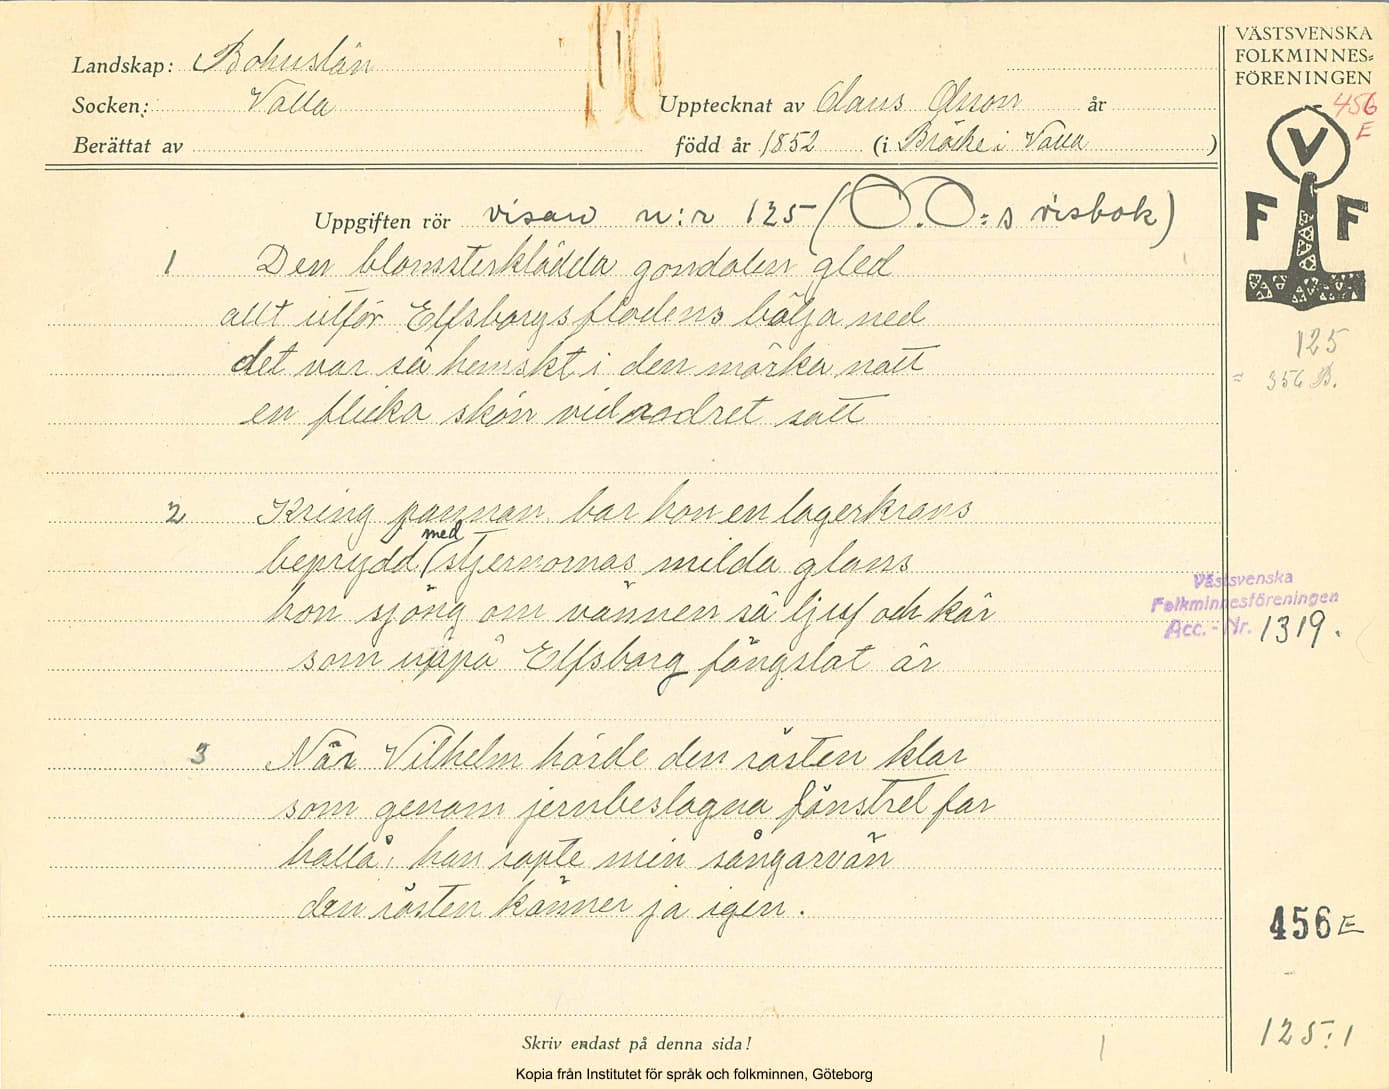 Landskap: Bohuslän
Socken: Valla
Berättat av
Upptecknat av Claus Olsson år
född år 1852 (i Bräcke i Valla)
VÄSTSVENSKA
FOLKMINNES=
FÖRENINGEN
456
E
V
F F
125
= 356 B.
Uppgiften rör visan n:r 125 (O.O:s visbok)
1 Den blomsterklädda gondolen gled
allt utför Elfsborgsflodens bölja ned
det var så hemskt i den mörka natt
en flicka skön vid rodret satt
2 Kring pannan bar hon en lagerkrans
beprydd med stjernornas milda glans
hon sjöng om vännen så ljuf och kär
som uppå Elfsborg fängslat är
Västsvenska
Folkminnesföreningen
Acc. - Nr. 1319.
3 När Vilhelm hörde den rösten klar
som genom jernbeslagna fönstret far
hallå, han ropte min sångarvän
den rösten känner ja igen.
456 E
125:1
1
Skriv endast på denna sida!
Kopia från Institutet för språk och folkminnen, Göteborg